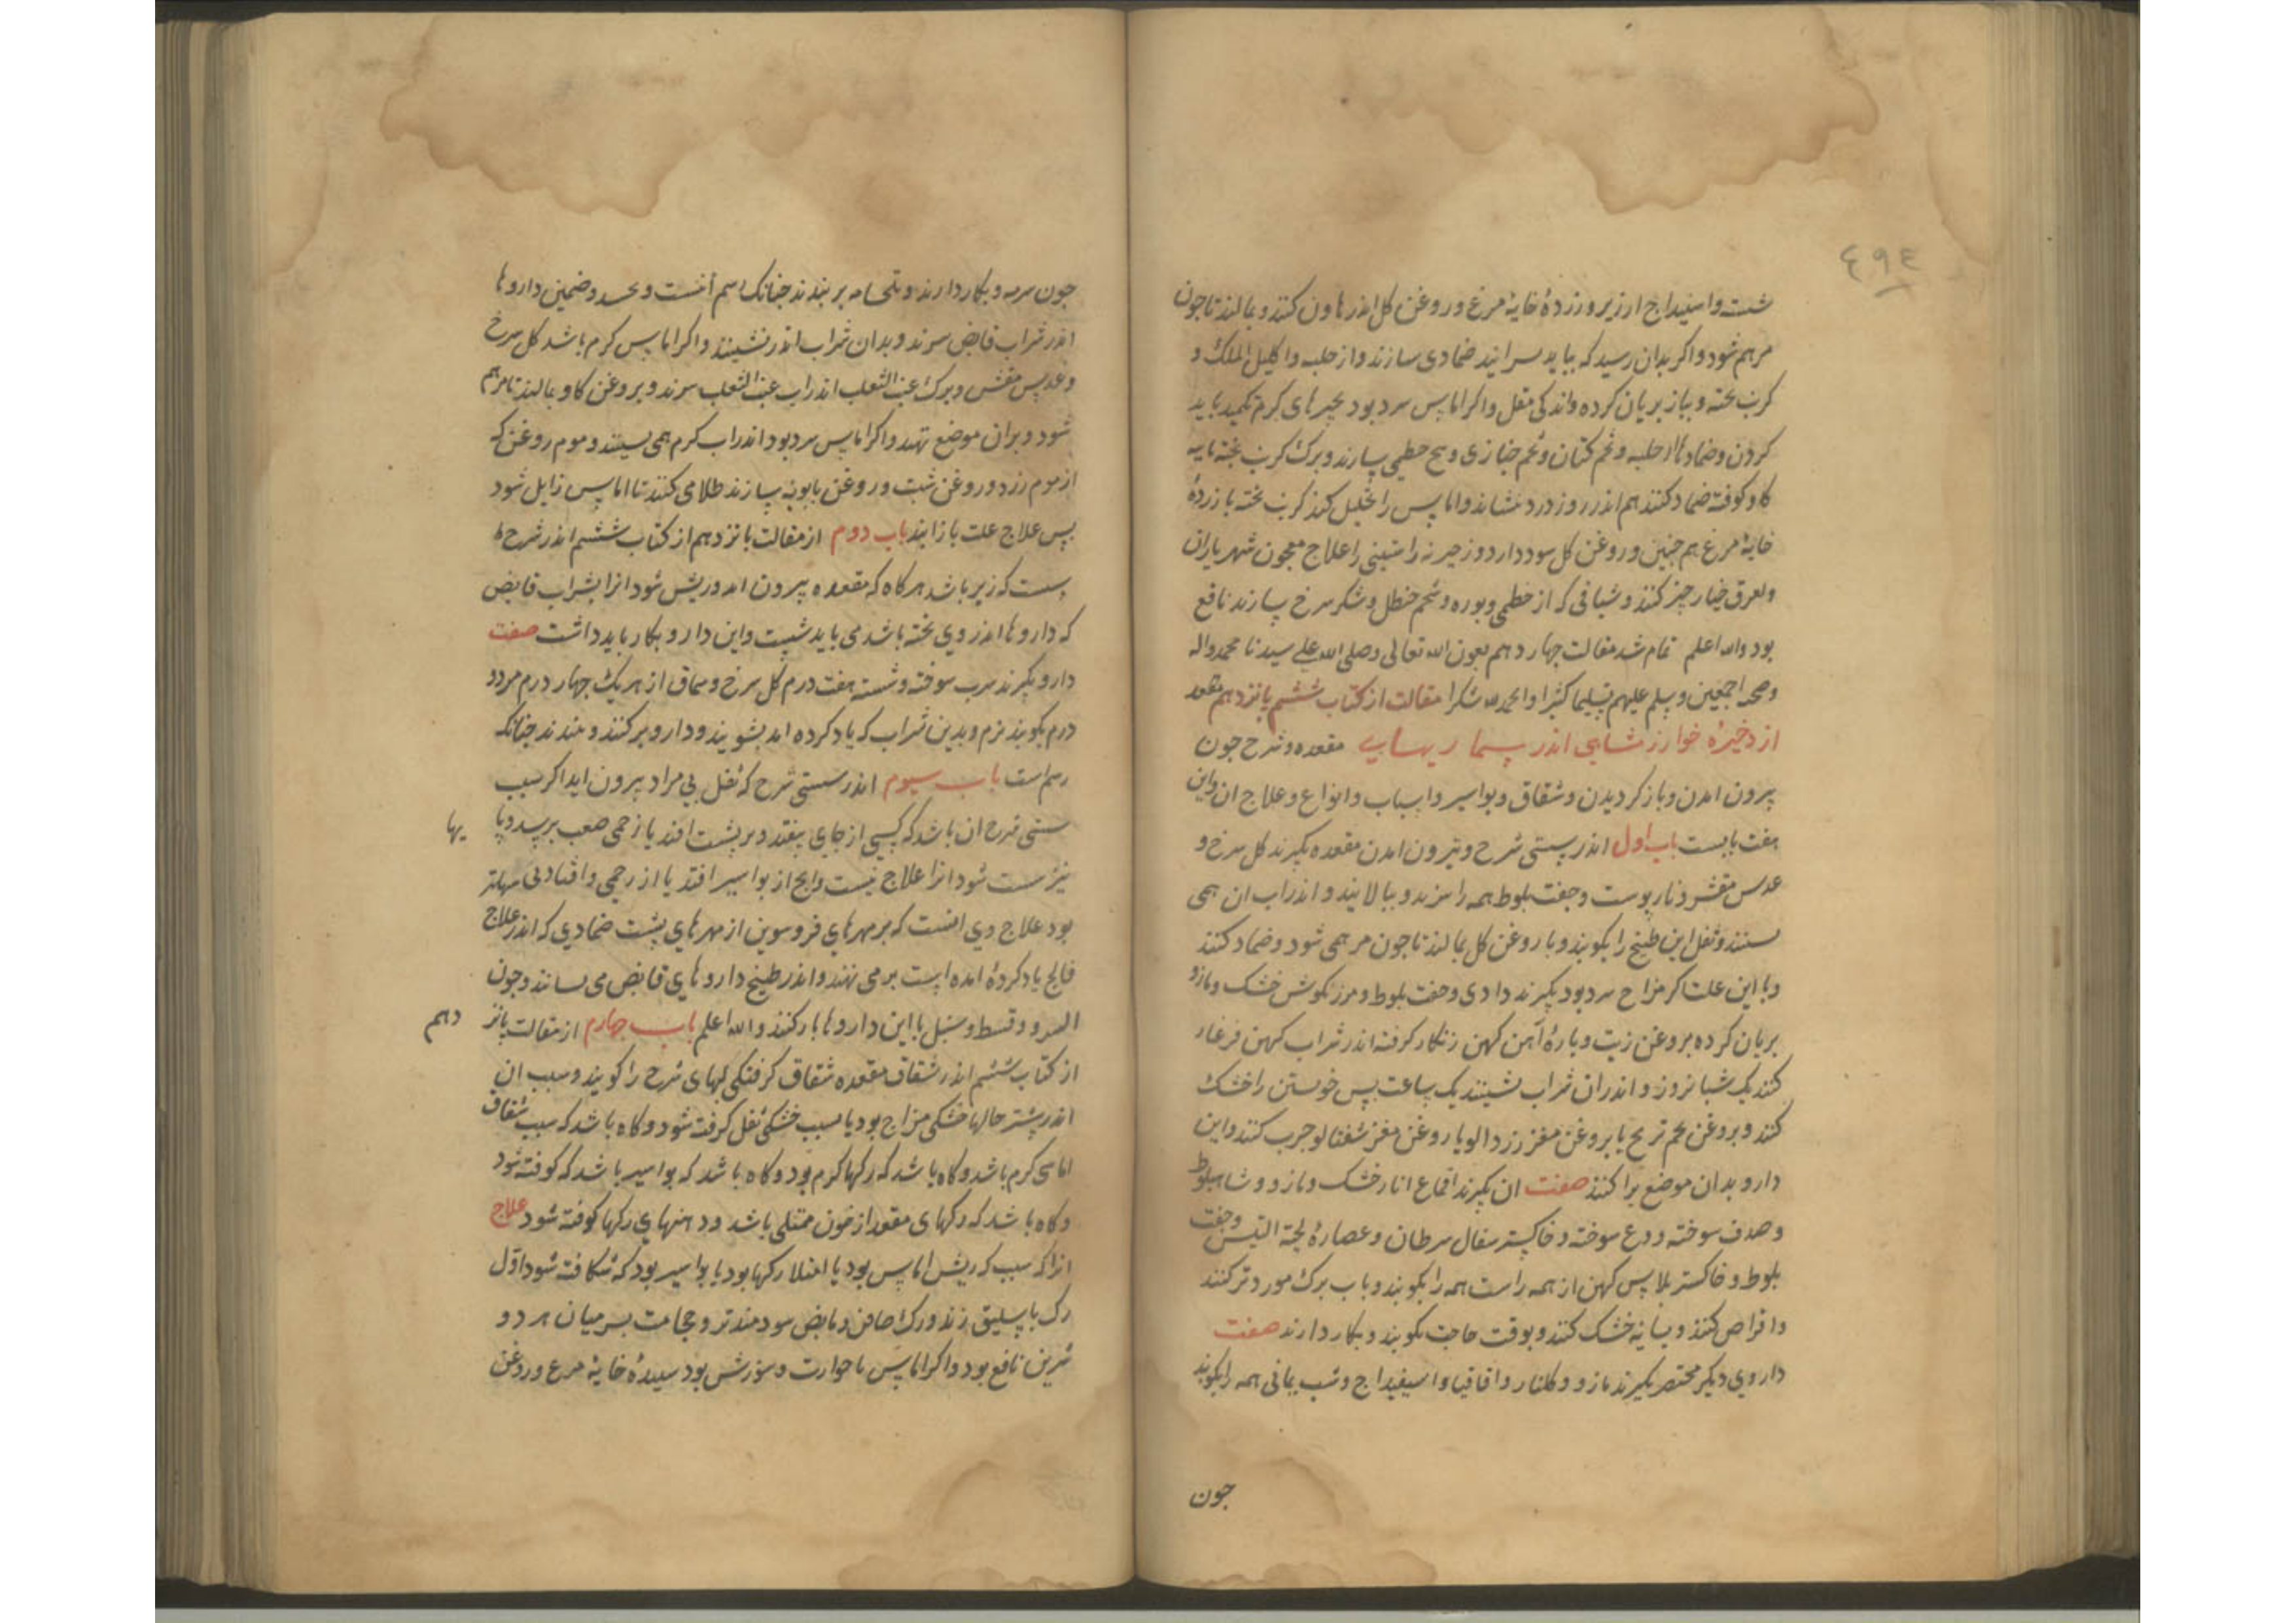 ٤٩٤
شست واسپیداج ارزیر و زردهٔ خایهٔ مرغ و روغن کل اندر هاون کنند و بمالند تا جون
مرهم شود و اکر بدان رسید که بباید ضمادی سازند و از حلبه و اکلیل الملک و
کرنب بخته و بیاز بریان کرده و اندکی مقل و اکر اماپس سرد بود بچیزهای کرم تکمید باید
کردن و ضمادها از حلبه و تخم کتان و تخم خبازی و بیخ خطمی بسازند و برک کرنب بخته با
کاو کوفته ضماد کنند هم اندر روز درد بنشاند و اماپس را تحلیل کند کرنب بخته با زردهٔ
خایهٔ مرغ هم جنین و روغن کل سود دارد و زحیر را علاج معجون شهریاران
و بعرق خیارچنبر کنند و شیافی که از خطمی و بوره و شحم حنظل و شکر سرخ بسازند نافع
بود والله اعلم تمام شد مقالت جهاردهم بعون الله تعالی وصلی الله علی سیدنا محمد واله
وصحبه اجمعین وسلم علیهم تسلیما کثیرا والحمد لله شکرا مقالت از کتاب ششم بانزدهم
از ذخیرهٔ خوارزمشاهی اندر بیماریهای مقعده و شرح جون
بیرون امدن و باز کردیدن و شقاق و بواسیر و اسباب و انواع و علاج ان و این
هفت بابست باب اول اندر سستی شرح و بیرون امدن مقعده بکیرند کل سرخ و
عدس مقشر و نار بوست و جفت بلوط همه را ببزند و ببالایند و اندر اب ان همی
نشینند و ثفل این طبیخ را بکوبند و با روغن کل بمالند تا جون مرهمی شود و ضماد کنند
و با این علت اکر مزاج سرد بود بکیرند و جفت بلوط و مرزنکوش خشک و مازو
بریان کرده بروغن زیت و بارهٔ آهن کهن زنکار کرفته اندر شراب کهن فرغار
کنند یک شبانروز و اندران شراب نشینند یک ساعت بس خویستن را خشک
کنند و بروغن تخم ترنج یا بروغن مغز زردالو یا روغن مغز شفتالو جرب کنند و این
دارو بدان موضع براکنند صفت ان بکیرند اقماع انار خشک و مازو و شاهبلوط
و صدف سوخته و ودع سوخته و خاکستر سفال سرطان و عصارهٔ لحیة التیس و جفت
بلوط و خاکستر بلاس کهن از همه راست همه را بکوبند و باب برک مورد تر کنند
و اقراص کنند و بسایه خشک کنند و بوقت حاجت بکوبند و بکار دارند صفت
داروی دیکر مختصر بکیرند مازو و کلنار و اقاقیا و اسفیداج و شب یمانی همه را بکوبند
جون
جون سرمه و بکار دارند و بر بندند جنانک رسم است و همین داروها
اندر شراب قابض ببزند و بدان شراب اندر نشینند و اکر اماپس کرم باشد کل سرخ
و عدس مقشر و برک عنب الثعلب اندر اب عنب الثعلب ببزند و بروغن کاو بمالند تا مرهم
شود و بران موضع نهند و اکر اماپس سرد بود اندر اب کرم همی نشینند و موم روغن که
از موم زرد و روغن شبت و روغن بابونه بسازند طلا می کنند تا اماپس زایل شود
بس علاج علت باز ایند باب دوم از مقالت بانزدهم از کتاب ششم اندر شرح
که زیر باشد هرکاه که مقعده بیرون اید و ریش شود انرا بشراب قابض
که داروها اندر وی بخته باشد می باید شست و این دارو بکار باید داشت صفت
دارو بکیرند سرب سوخته و شسته هفت درم کل سرخ و سماق از هر یک جهار درم مر دو
درم بکوبند نرم و بدین شراب که یاد کرده امد بشویند و دارو برکنند و ببندند جنانکه
رسم است باب سیوم اندر سستی شرح که ثفل بی مراد بیرون اید اکر سبب
سستی شرح ان باشد که کسی از جای بیفتد و بر بشت افتد یا زخمی صعب برسد و با یها
نیز سست شود انرا علاج نیست و انج از بواسیر افتد یا از زخمی و افتادنی سهلتر
بود علاج وی انست که بر مهرهای فروسوین از مهرهای بشت ضمادی که اندر علاج
فالج یاد کرده امده است بر می نهند و اندر طبیخ داروهای قابض می نشانند و جون
السرو و قسط و سنبل با این داروها یار کنند والله اعلم باب جهارم از مقالت بانزدهم
از کتاب ششم اندر شقاق مقعده شقاق کرفتکی لبهای شرح را کویند و سبب ان
اندر بیشتر حالها خشکی مزاج بود یا بسبب خشکی ثفل کرفته شود و کاه باشد که سبب شقاق
اماسی کرم باشد و کاه باشد که رکها کرم بود و کاه باشد که بواسیر باشد که کوفته شود
و کاه باشد که رکهای مقعد از خون ممتلی باشد و دهنهای رکها کوفته شود علاج
انرا که سبب که ریش اماپس بود یا امتلا رکها بود یا بواسیر بود که شکافته شود اوّل
رک باسلیق زنند و رک صافن و مابض سودمندتر و حجامت بر میان هر دو
سرین نافع بود و اکر اماپس با حرارت و سوزش بود سبیدهٔ خایهٔ مرغ و روغن